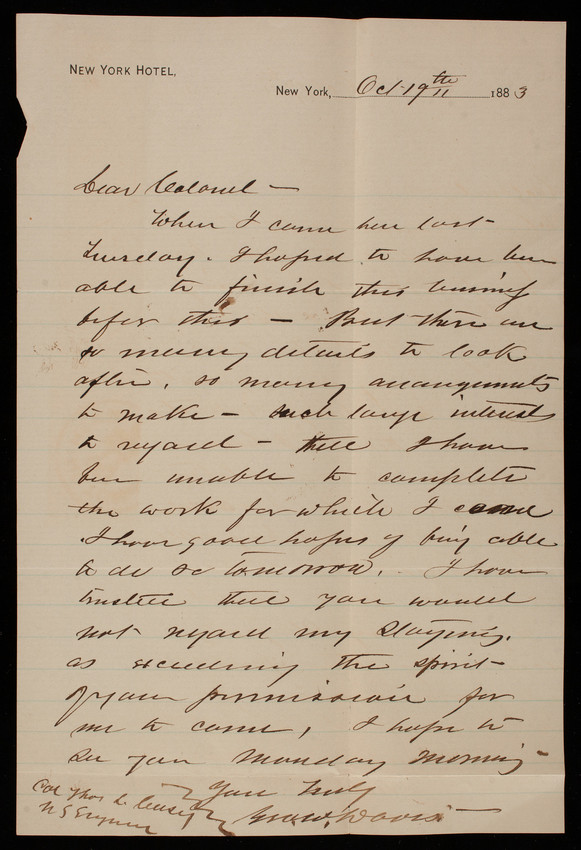 NEW YORK HOTEL,
New York, Oct 19th 1883
Dear Colonel —
When I came here last
Tuesday. I hoped to have been
able to finish this business
before this — But there are
so many details to look
after, so many arrangements
to make — such large interests
to regard — that I have
been unable to complete
the work for which I came
I have good hopes of being able
to do so tomorrow. I have
trusted that you would
not regard my staying,
as exceeding the spirit
of your permission for
me to come, I hope to
see you Monday morning —
Yours truly
Geo. W. Davis —
Col Thos L. Casey
U S Engineer